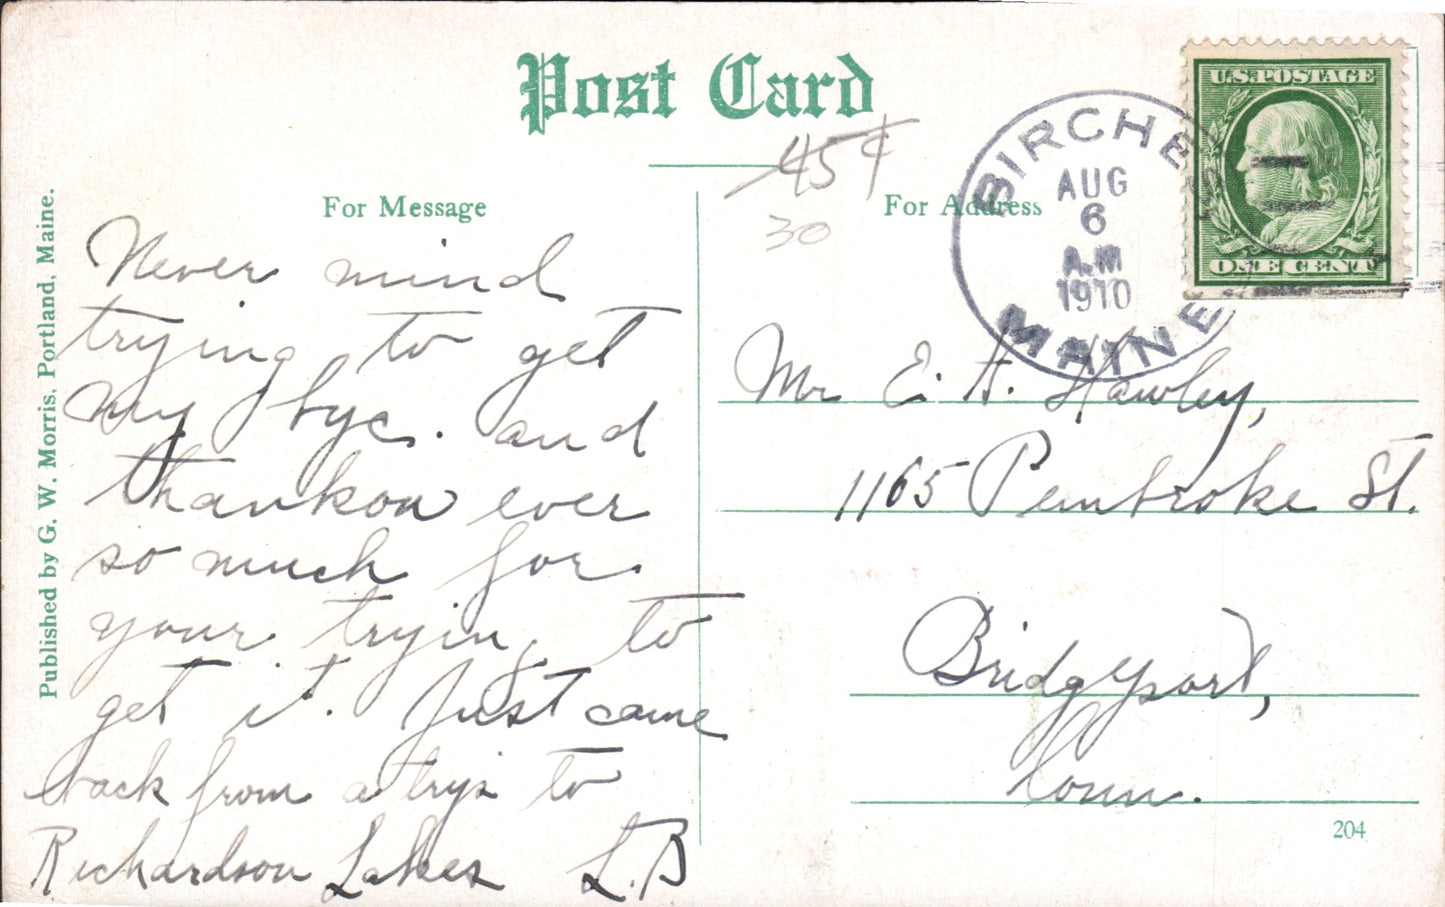 Post Card
45¢
30
For Message
For Address
Published by G. W. Morris, Portland, Maine.
BIRCHES
AUG
6
A.M
1910
MAINE
U.S.POSTAGE
ONE CENT
Never mind
trying to get
my byc. and
thankou ever
so much for
your trying to
get it. Just came
back from a trip to
Richardson Lakes L.B
Mr E. A. Hawley,
1165 Pembroke St.
Bridgeport,
Conn.
204